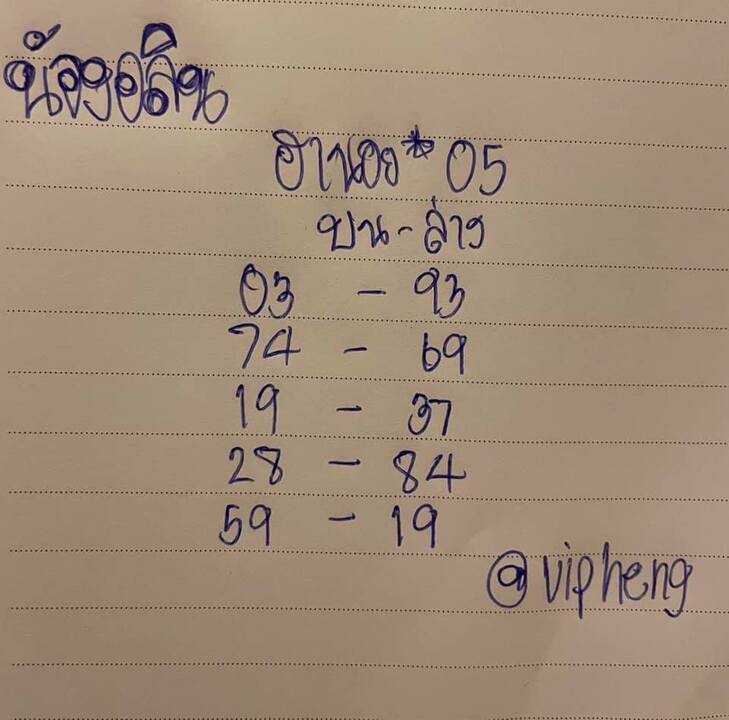 น้องอลิน
ฮานอย* 05
บน - ล่าง
03 - 93
74 - 69
19 - 37
28 - 84
59 - 19
@vipheng